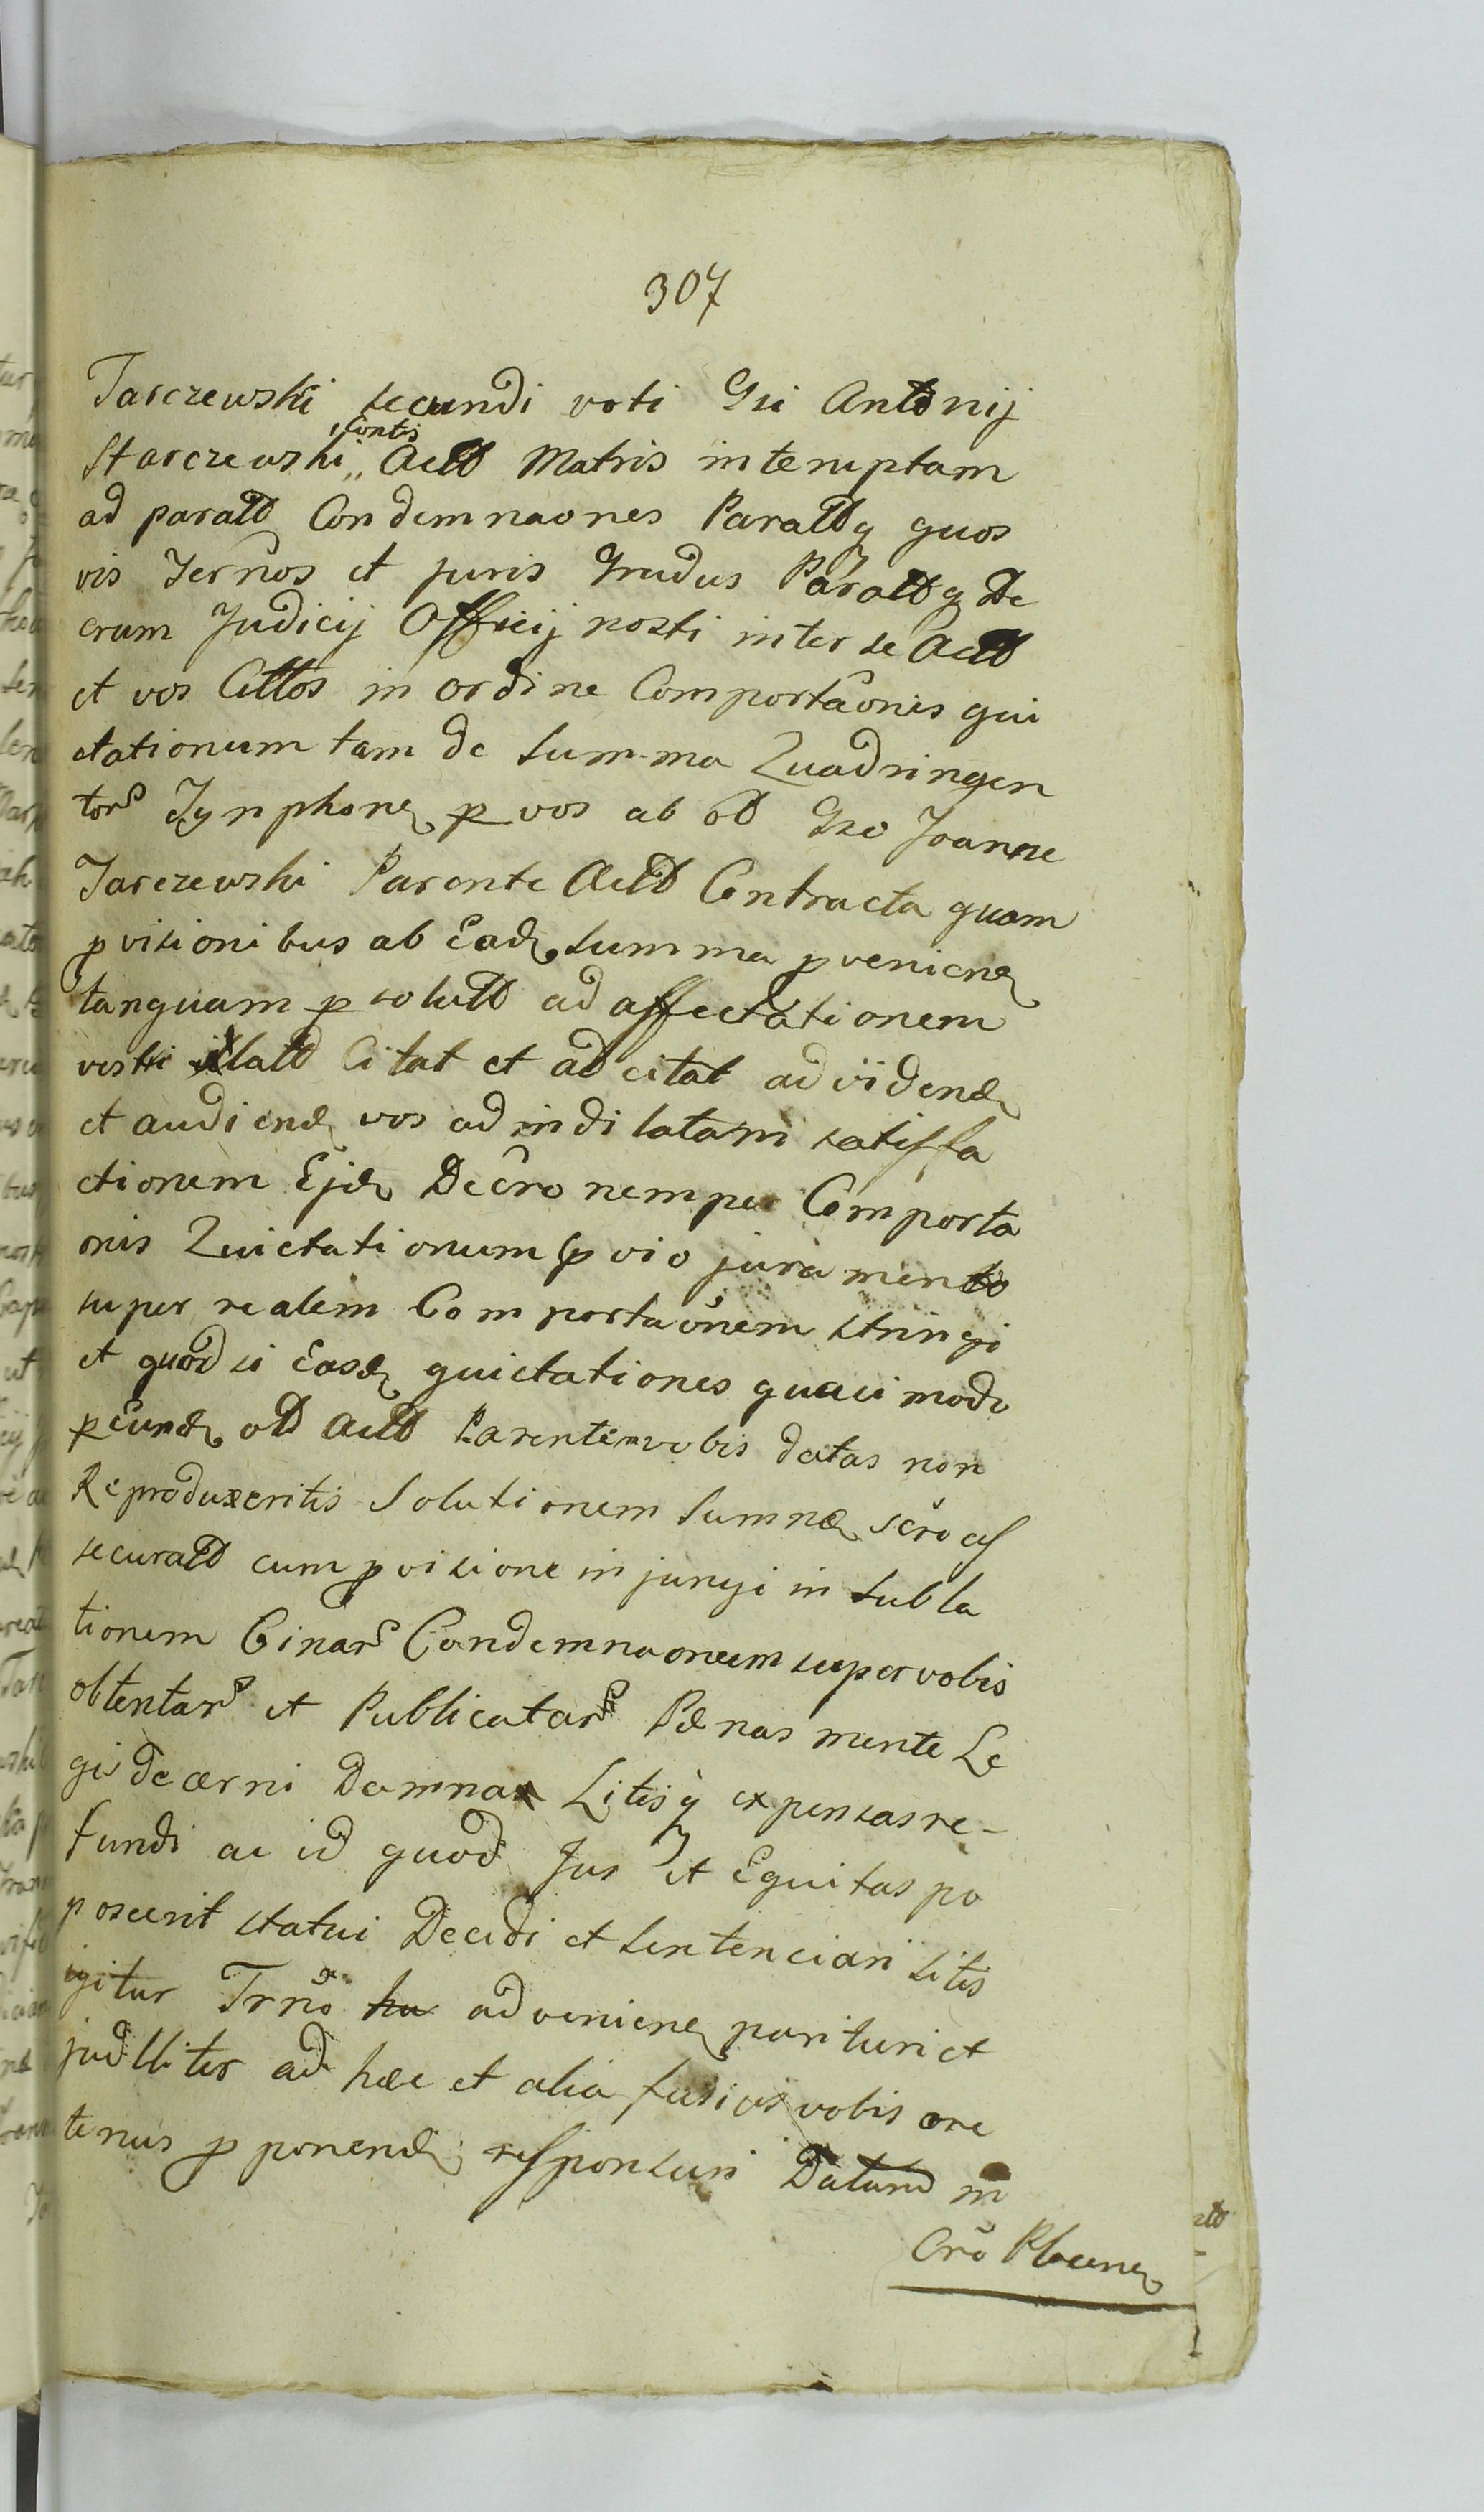 307
Tarczewski secundi voti Gsi Antonij
Contis
Starczewski Actt Matris interuptam
ad paratt Condemnaones Parattq quos
vis Ternos et juris Gradus Parattq De
crum Judicij Officij nosti inter se Actt
et vos Cittos in ordine Comportaonis qui
ctationum tam de Summa Quadringen
tor Tynphonē p vos ab od Gso Joanne
Tarczewski Parente Actt Contracta quam
pvisionibus ab Eadē Summa pvenienē
tanquam psolutt ad affectationem
vestri illatt Citat et adcitat ad videndē
et audiendē vos ad indilatam satisfa
ctionem Ejdē Decro nempe Comporta
onis Quictationum pvio juramento
super realem Comportaonem stringi
et quod si Easdē quictationes quasi modo
p Eundē od Actt Parentem vobis datas non
Reproduxeritis Solutionem Summæ scro as
securatt cum pvisione injungi in subla
tionem Binar Condemnaonum super vobis
obtentar et Publicatar Pænas mente Le
gis decærni Damna Litisq expensas re-
fundi ac id quod Jus et Equitas po
poscerit statui Decidi et Sentenciari sitis
igitur Trno ad venienē parituri et
judlliter ad hæc et alia fusius vobis ore
tenus pponendē responsuri Datum in
Cro Plocenē